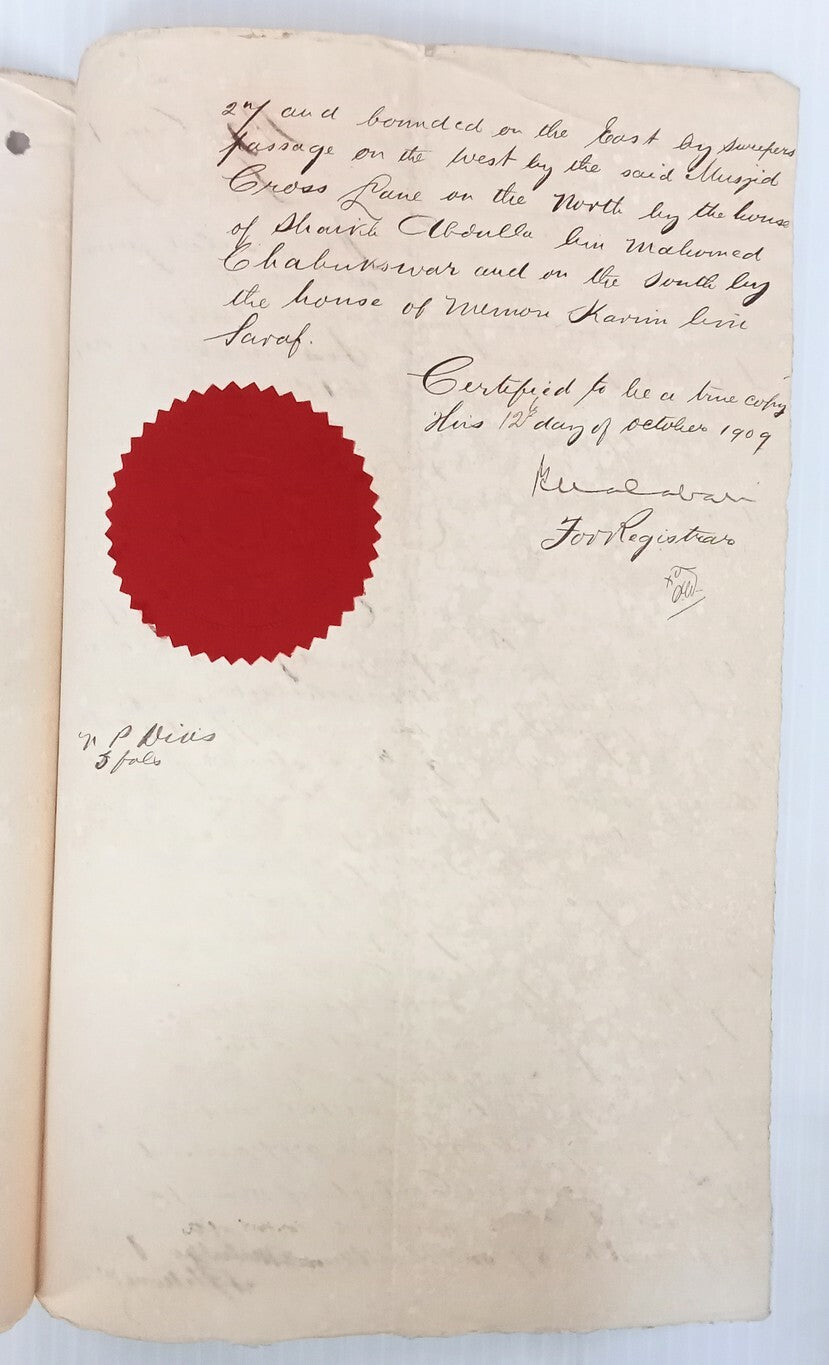 2ry and bounded on the East by sweepers
passage on the West by the said Musjid
Cross Lane on the North by the house
of Shaikh Abdulla bin Mahomed
Chabukswar and on the South by
the house of Memon Karim bin
Saraf.
Certified to be a true copy
this 12th day of October 1909
For Registrar
5 fols